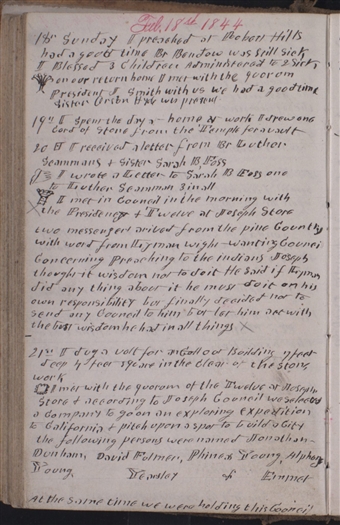 Feb, 18th 1844
18th Sunday I preached at Robert Hills
had a good time Br Benbow was still sick
I Blessed 3 Children Administered to 2 sick,
on our return home I met with the quorom
President J Smith with us we had a good time
Sister Orson Hyde was present
19th I spent the day at home at work I drew one
Cord of Stone from the Temple for a vault
20th I received a letter from Br Luther
Scammans & Sister Sarah B Foss
I wrote a Letter to Sarah B Foss one
to Luther Scamman 3 in all
I met in Council in the morning with
the Presidency & Twelve at Joseph Store
two messengers arived from the pine Country
with word from Lyman wight wanting Councel
Concerning Preaching to the indians Joseph
thought it wisdom not to do it He said if Lyman
did any thing about it he must do it on his
own responsibility but finally decided not to
send any Councel to him but let him act with
the best wisdom he had in all things X
21st I dug a volt for an Gallow Building 9 feet
deep 4 feet square in the Clear of the Stone
work
I met with the quorom of the Twelve at Joseph
Store & according to Joseph Council we selected
a Company to go on an exploring expedition
to California & pitch upon a spot to build a City
the following persons were named Jonathan
Dunham, David Fulmer, Phineas Young, Alphonzo
Young, Yearsley of Emmet
At the same time we were holding this Council